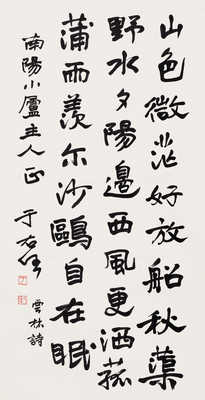 山色微茫好放船秋蕖
野水夕陽邊西風更洒菰
蒲雨羨尔沙鷗自在眠
雲林詩
南陽小廬主人正
于右任